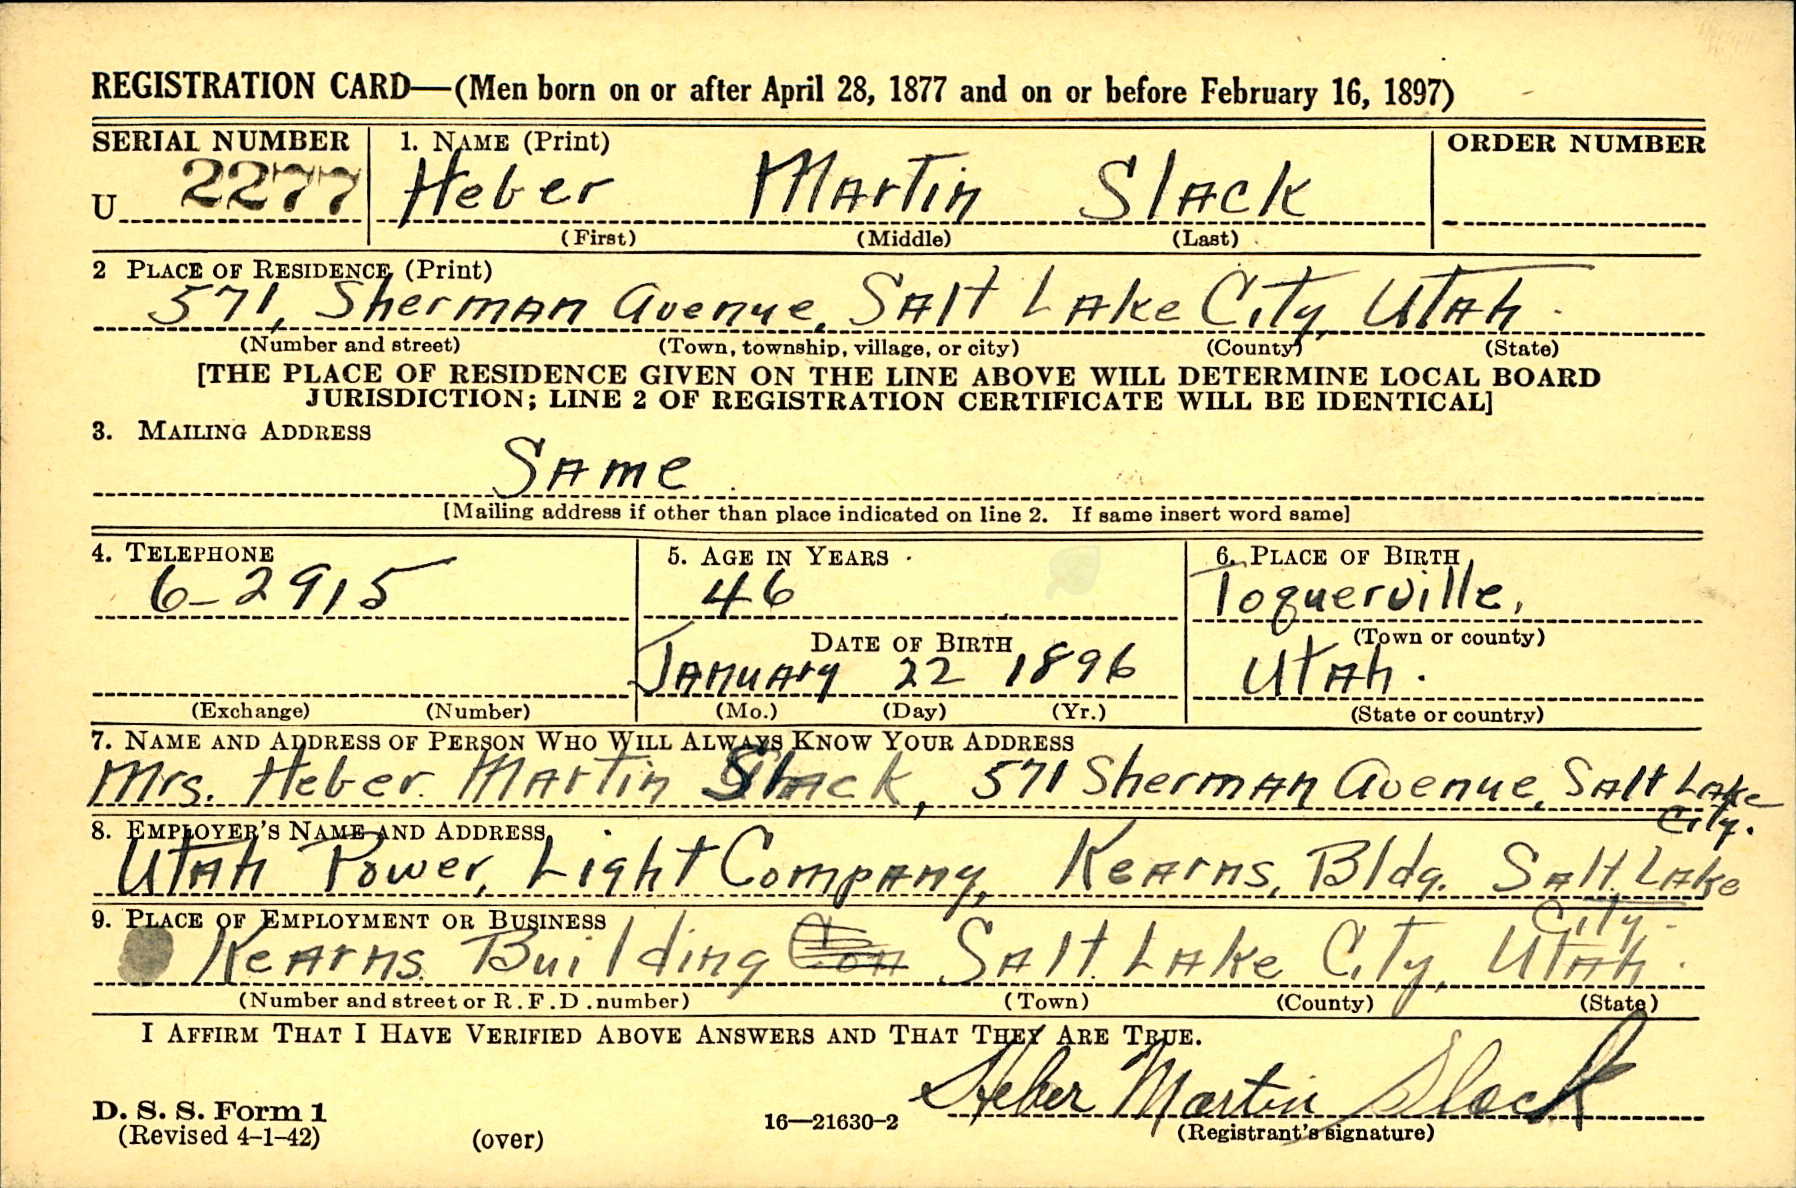 REGISTRATION CARD—(Men born on or after April 28, 1877 and on or before February 16, 1897)
SERIAL NUMBER 1. NAME (Print) ORDER NUMBER
U 2277 Heber Martin Slack
(First) (Middle) (Last)
2 PLACE OF RESIDENCE (Print)
571, Sherman Avenue, Salt Lake City, Utah.
(Number and street) (Town, township, village, or city) (County) (State)
[THE PLACE OF RESIDENCE GIVEN ON THE LINE ABOVE WILL DETERMINE LOCAL BOARD
JURISDICTION; LINE 2 OF REGISTRATION CERTIFICATE WILL BE IDENTICAL]
3. MAILING ADDRESS
Same
[Mailing address if other than place indicated on line 2. If same insert word same]
4. TELEPHONE 5. AGE IN YEARS 6. PLACE OF BIRTH
6-2915 46 Toquerville,
DATE OF BIRTH (Town or county)
January 22 1896 Utah.
(Exchange) (Number) (Mo.) (Day) (Yr.) (State or country)
7. NAME AND ADDRESS OF PERSON WHO WILL ALWAYS KNOW YOUR ADDRESS
Mrs. Heber Martin Slack, 571 Sherman Avenue, Salt Lake
City.
8. EMPLOYER'S NAME AND ADDRESS
Utah Power, Light Company, Kearns, Bldg. Salt Lake
City.
9. PLACE OF EMPLOYMENT OR BUSINESS
Kearns Building Salt Lake City, Utah.
(Number and street or R.F.D. number) (Town) (County) (State)
I AFFIRM THAT I HAVE VERIFIED ABOVE ANSWERS AND THAT THEY ARE TRUE.
Heber Martin Slack
D. S. S. Form 1
(Revised 4-1-42) (over) 16—21630-2 (Registrant's signature)